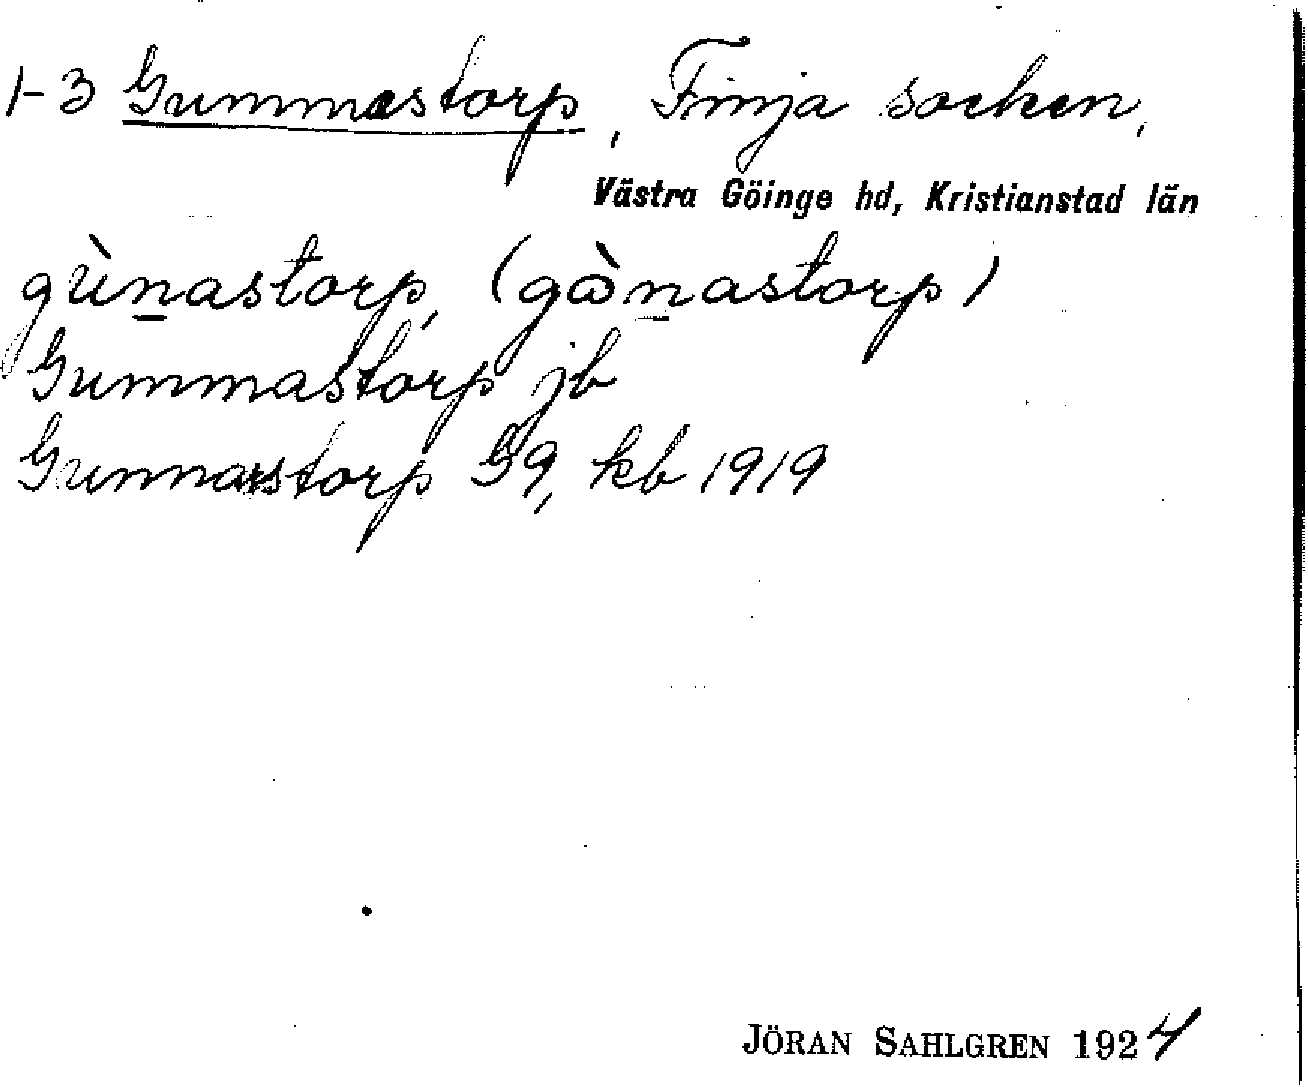 1-3 Gummastorp, Finja socken,
Västra Göinge hd, Kristianstad län
gùn̲astorp, (gὼn̲astorp)
Gummastorp jb
Gunnarstorp G9, kb 1919
JÖRAN SAHLGREN 1924